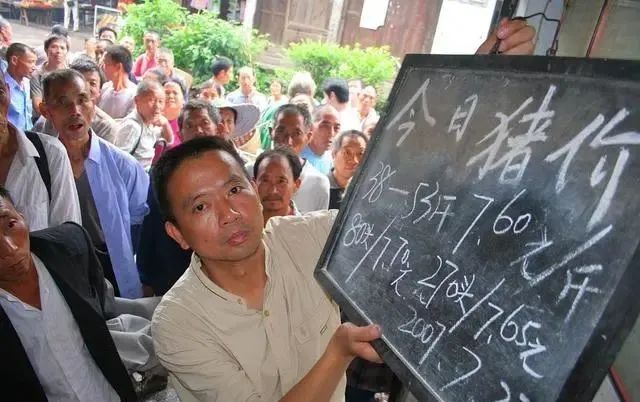 今日猪价
38—53斤7.60元/斤
80头/7.7元 270头/7.65元
2007.7.